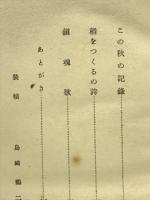 この秋の記録
稲をつくるの詩
鎮魂歌
あとがき
装幀 島崎鶴二